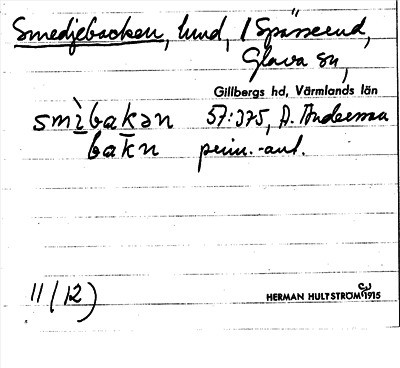 Smedjebacken, lund, 1 Spässerud,
Glava sn,
Gillbergs hd, Värmlands län
smìbakən 57:375, A. Andersson
bakn prim.-ant.
11 (12)
HERMAN HULTSTRÖM 1915